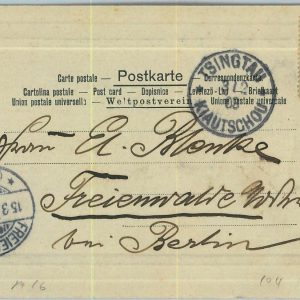 Carte postale — Postkarte — Correspondenzkarte
Cartolina postale — Post card — Dopisnice — Levelező-Lap — Briefkaart
Union postale universelle: — Weltpostverein — Unione postale universale.
TSINGTAU
KIAUTSCHOU
A. Klenke
Freienwalde
bei Berlin
FREIE
15.3
1916
104